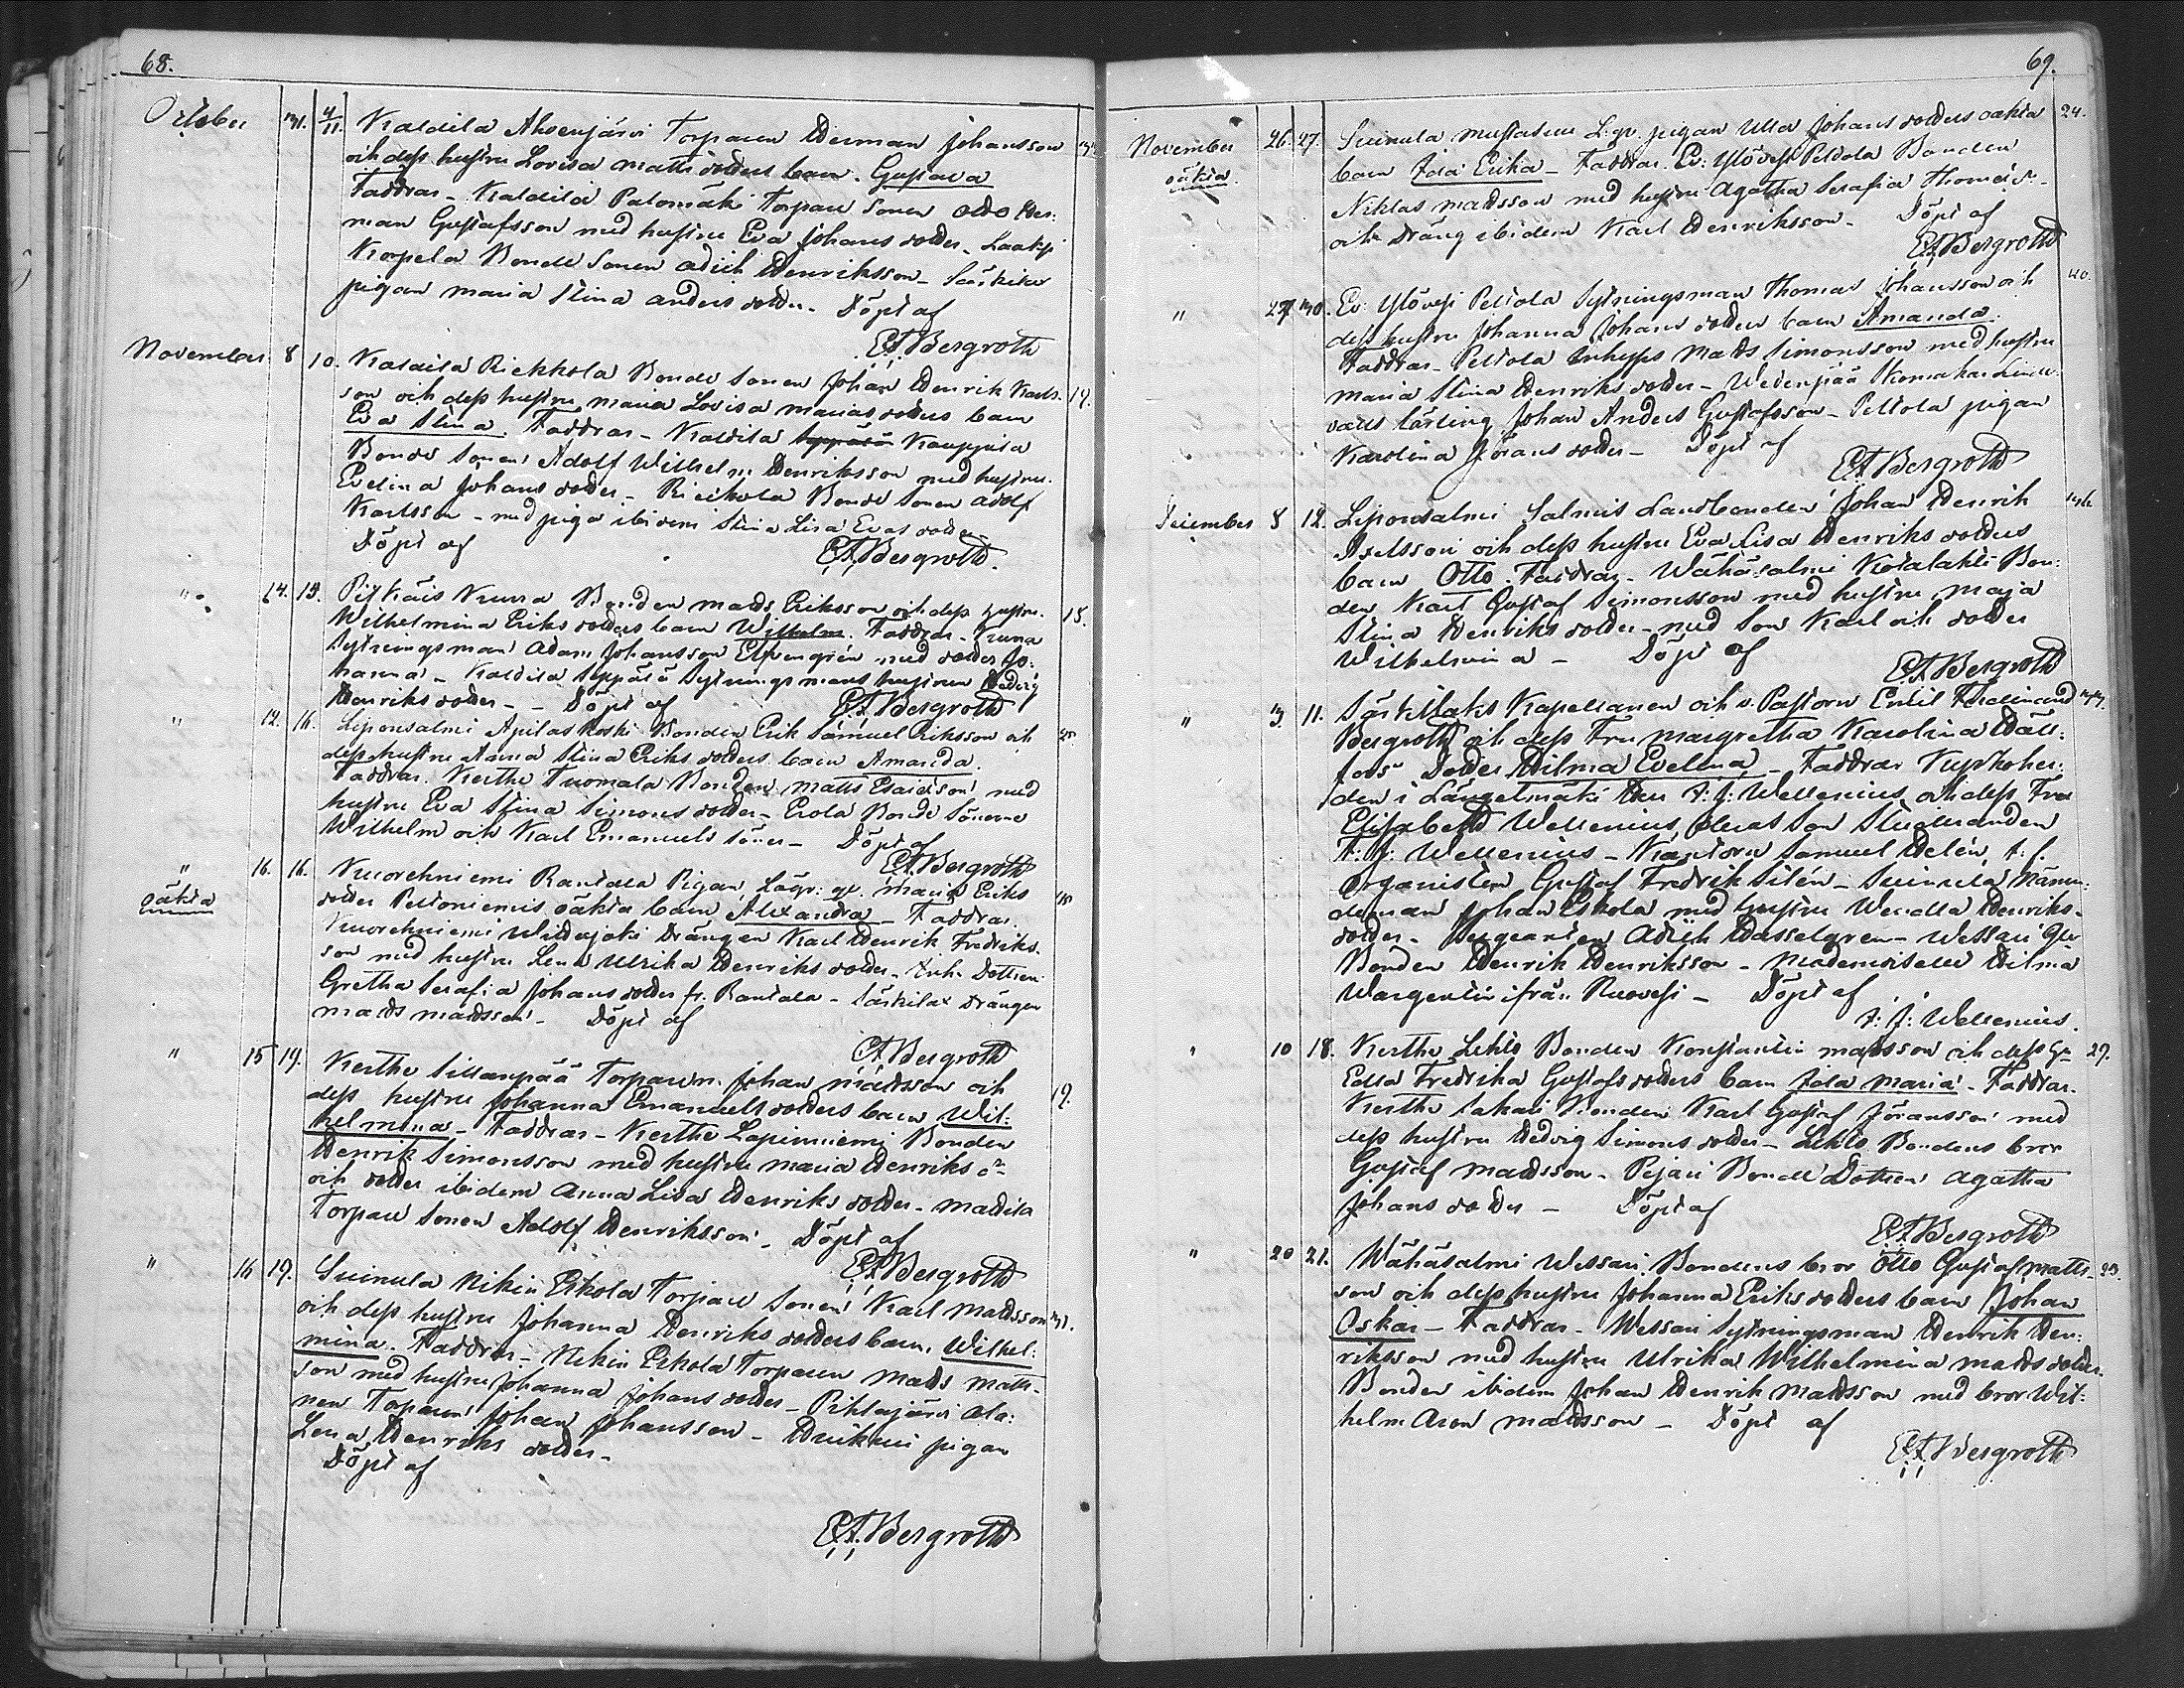 68.
October 31. 4/11. Kaldila Ahvenjärvi Torparen Herman Johansson
och dess hustru Lovisa Matts dotters barn. Gustava
Faddrar - Kaldila Palomäki Torpare Sonen Otto Her:
man Gustafsson med hustru Eva Johans dotter - Laaksi
Korpela Bonde Sonen Adich Henriksson - Särkilax
pigan Maria Stina Anders dotter - Döpt af
E.F. Bergroth
November 8 10. Kaldila Riekkola Bonde Sonen Johan Henrik Karls-
son och dess hustru Maria Lovisa Marias dotters barn 19.
Eva Stina. Faddrar - Kaldila Seppälä Kauppila
Bonde Sonen Adolf Wilhelm Henriksson med hustru
Evelina Johans dotter - Rieckola Bonde Sonen Adolf
Karlsson - med piga ibidem Stina Lisa Evas dotter
Döpt af E.F. Bergroth.
" 14. 13. Pitkäis Kruna Bonden Mads Eriksson och dess hustru
Wilhelmina Eriks dotters barn Wilhelm. Faddrar - Kruna 18.
Sytningsman Adam Johansson Elfvengrén med dotter Jo:
hanna - Kaldila Seppälä Sytningsmans hustrun Hedvig
Henriks dotter - - Döpt af E.F. Bergroth
" 12. 16. Liponsalmi Apilaskoski Bonden Erik Samuel Eriksson och
dess hustru Anna Stina Eriks dotters barn Amanda.
Faddrar. Kerthe Tuomala Bonden Matts Esaiasson med
hustru Eva Stina Simons dotter - Erola Bonde Sönerne
Wilhelm och Karl Emanuels söner - Döpt af
E.F. Bergroth
" 16. 16. Kuorehniemi Rantala Pigan Lägr: qv. Maria Eriks
oäkta dotter Peltoniemis oäkta barn Alexandra - Faddrar
Kuorehniemi Wildujoki Drängen Karl Henrik Fredriks-
son med hustru Lena Ulrika Henriks dotter - Inh. Dottren
Gretha Serafia Johans dotter fr. Rantala - Särkilax Drängen
Mads Madsson - Döpt af
E.F. Bergroth
" 15 19. Kerthe Sillanpää Torparen Johan Madsson och
dess hustru Johanna Emanuels dotters barn Wil: 19.
helmina - Faddrar - Kerthe Lapinniemi Bonden
Henrik Simonsson med hustru Maria Henriks dr
och dotter ibidem Anna Lisa Henriks dotter - Mattila
Torpare Sonen Adolf Henriksson - Döpt af
E.F. Bergroth
" 16 19. Suinula Nikin Eskola Torpare Sonen Karl Madsson 31.
och dess hustru Johanna Henriks dotters barn. Wilhel:
mina. Faddrar - Nikin Eskola Torparen Mads Matts-
son med hustru Johanna Johans dotter - Pihlajärvi Ala:
nen Torparen Johan Johansson - pigan
Lena Henriks dotter -
Döpt af
E.F. Bergroth
69.
November 26. 27. Suinula Mustasuu L: qv. pigan Ulla Johans dotters oäkta 24.
oäkta barn Ida Erika - Faddrar. Ev: Ylövesi Peltola Bonden
Niklas Madsson med hustru Agatha Serafia Thomæ dr -
och Dräng ibidem Karl Henriksson - Döpt af
E.F. Bergroth
" 27 30. Ev: Ylövesi Peltola Sytningsman Thomas Johansson och 40.
dess hustru Johanna Johans dotters barn Amanda.
Faddrar - Peltola Inhyses Mads Simonsson med hustru
Maria Stina Henriks dotter - Wedenpää
lärling Johan Anders Gustafsson - Peltola pigan
Karolina Görans dotter - Döpt af
E.F. Bergroth
December 8 12. Liponsalmi Salmis Landbonden Johan Henrik 36.
Axelsson och dess hustru Eva Lisa Henriks dotters
barn Otto. Faddrar - Wähäsalmi Kotalahti Bon:
den Karl Gustaf Simonsson med hustru Maja
Stina Henriks dotter - med Son Karl och dotter
Wilhelmina - Döpt af
E.F. Bergroth
" 3 11. Särkilaks Kapellanen och v. Pastorn Emil Ferdinand
Bergroth och dess Fru Margretha Karolina Häll:
fors Dotter Hilma Evelina - Faddrar Kyrkoher:
den i Längelmäki Herr F: J: Wellenius och dess Fru
Elisabeth Wellenius, deras Son Studeranden
F: J: Wellenius - Kantorn Samuel Helén, t: f.
Organisten Gustaf Fredrik Silén - Suinula Nämn:
deman Johan Eskola med hustru Wendla Henriks-
dotter - Sergeanten Adich Hasselgren - Wessari
Bonden Henrik Henriksson - Mademoiselle Hilma
Wargentin ifrån Ruovesi - Döpt af
F: J: Wellenius.
" 10 18. Kerthe Lehto Bonden Konstantin Madsson och dess 29.
Edla Fredrika Gustafs dotters barn Ida Maria - Faddrar.
Kerthe Sakari Bonden Karl Gustaf Jöransson med
dess hustru Hedvig Simons dotter - Lehto Bondens bror
Gustaf Madsson - Pejari Bonde Dottren Agatha
Johans dotter - Döpt af
E.F. Bergroth
" 20 21. Wähäsalmi Wessari Bondens bror Otto Gustaf Matts-
son och dess hustru Johanna Eriks dotters barn Johan
Oskar - Faddrar - Wessari Sytningsman Henrik Hen:
riksson med hustru Ulrika Wilhelmina Mads dotter.
Bonden ibidem Johan Henrik Madsson med bror Wil:
helm Aron Madsson - Döpt af
E.F. Bergroth